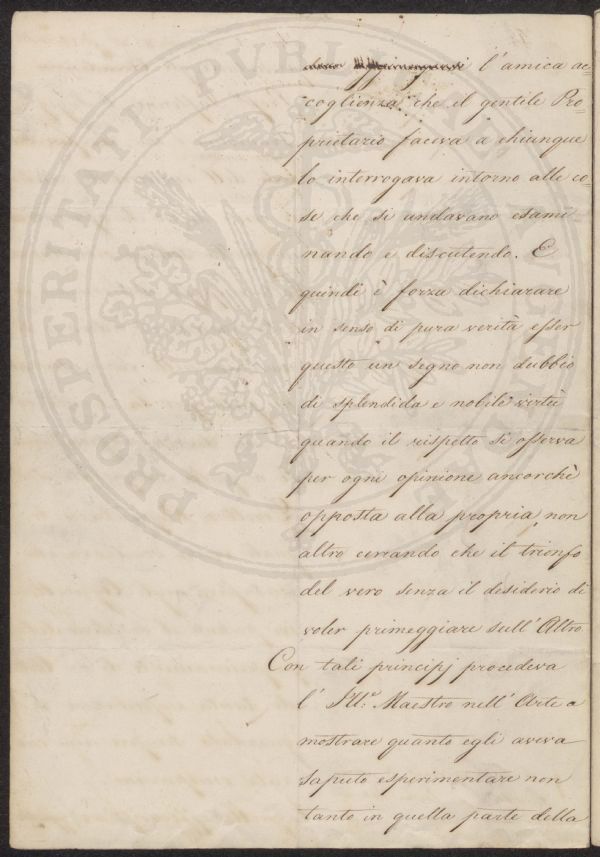 l'amica ac=
coglienza che il gentile Pro=
prietario faceva a chiunque
lo interrogava intorno alle co=
se che si andavano esami
nando e discutendo. E
quindi è forza dichiarare
in senso di pura verità esser
questo un segno non dubbio
di splendida e nobile virtù
quando il rispetto si osserva
per ogni opinione ancorchè
opposta alla propria, non
altro cercando che il trionfo
del vero senza il desiderio di
voler primeggiare sull'Altro.
Con tali principj procedeva
l' Ill.e Maestro nell'Arte a
mostrare quanto egli aveva
saputo esperimentare non
tanto in quella parte della
PROSPERITATI PVBLICAE